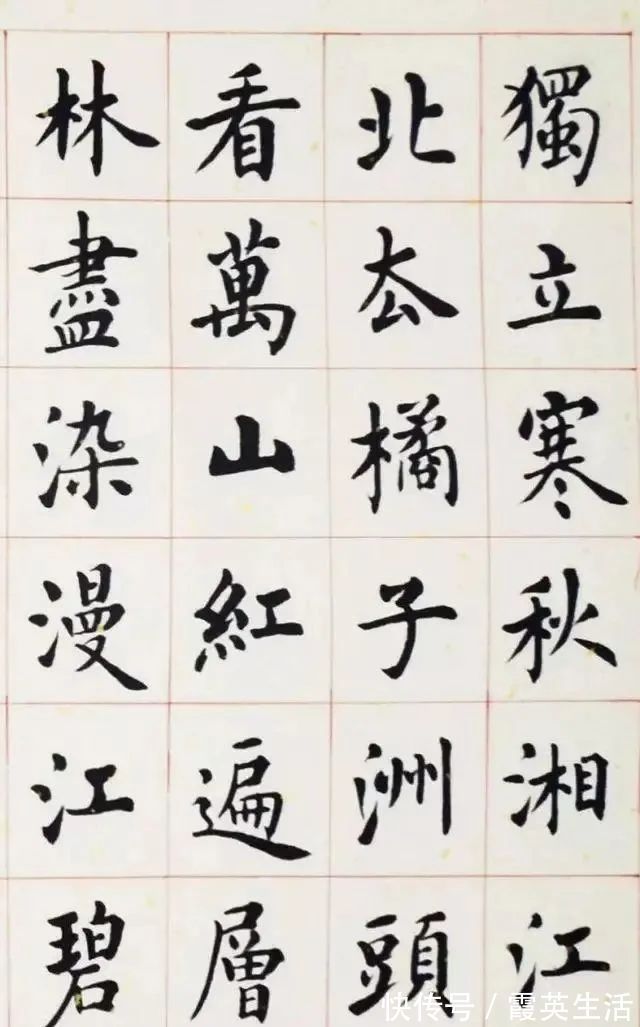 獨立寒秋湘江
北厺橘子洲頭
看萬山紅遍層
林盡染漫江碧
快传号 / 霞英生活